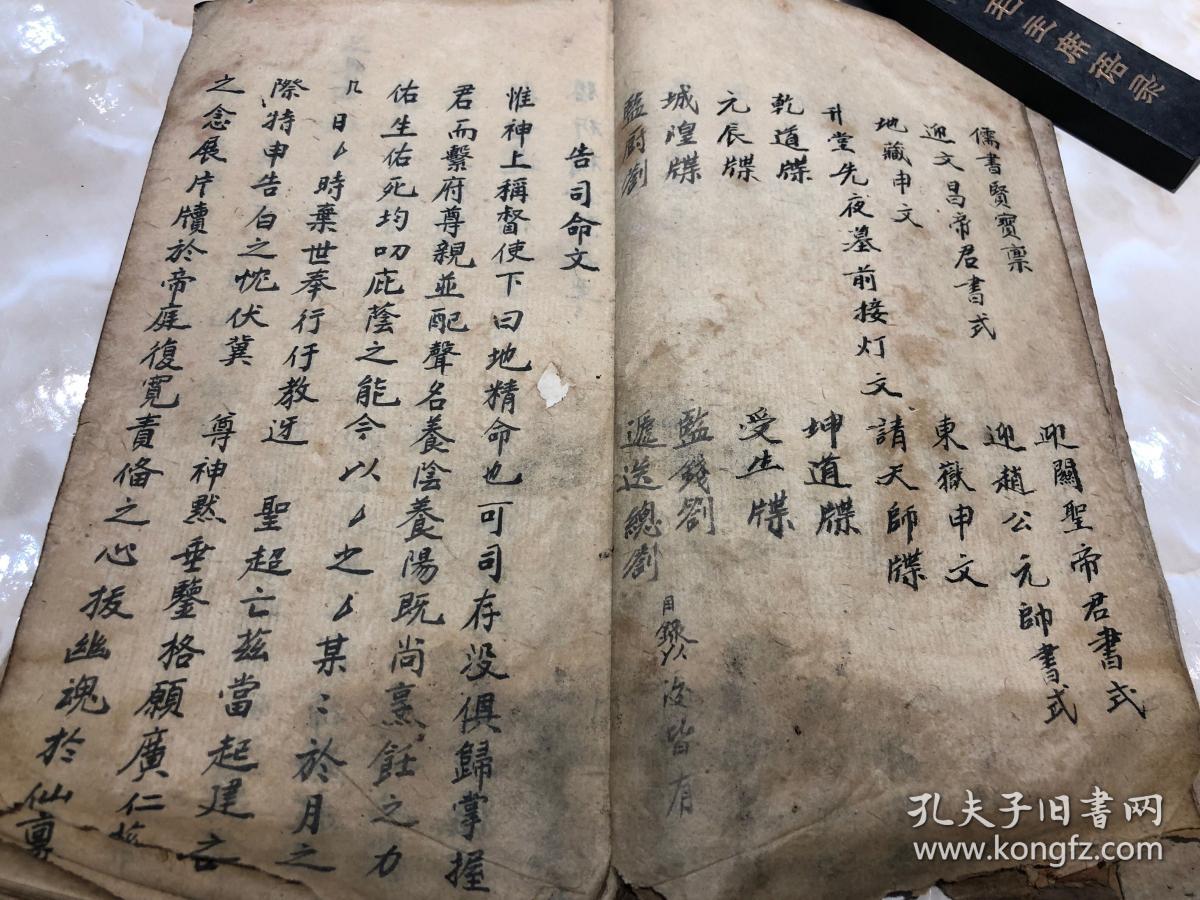 毛主席语录
儒書賢賓禀
迎關聖帝君書式
迎文昌帝君書式
迎趙公元帥書式
地藏申文
東嶽申文
升堂先夜墓前接灯文
請天師牒
乾道牒
坤道牒
元辰牒
受生牒
城隍牒
監錢劄
監厨劄
遞送總劄
目錄後皆有
告司命文
惟神上稱督使下曰地精命也可司存没俱歸掌握
君而繫府尊親並配聲名養陰養陽既尚烹飪之力
佑生佑死均叨庇蔭之能今以厶之厶某〻於月之
几日厶時棄世奉行仔教迓 聖超亡茲當起建之
際特申告白之忱伏冀 尊神默垂鑒格願廣仁慈
之念展片牘於帝庭復寬責偹之心援幽魂於仙
孔夫子旧书网
www.kongfz.com